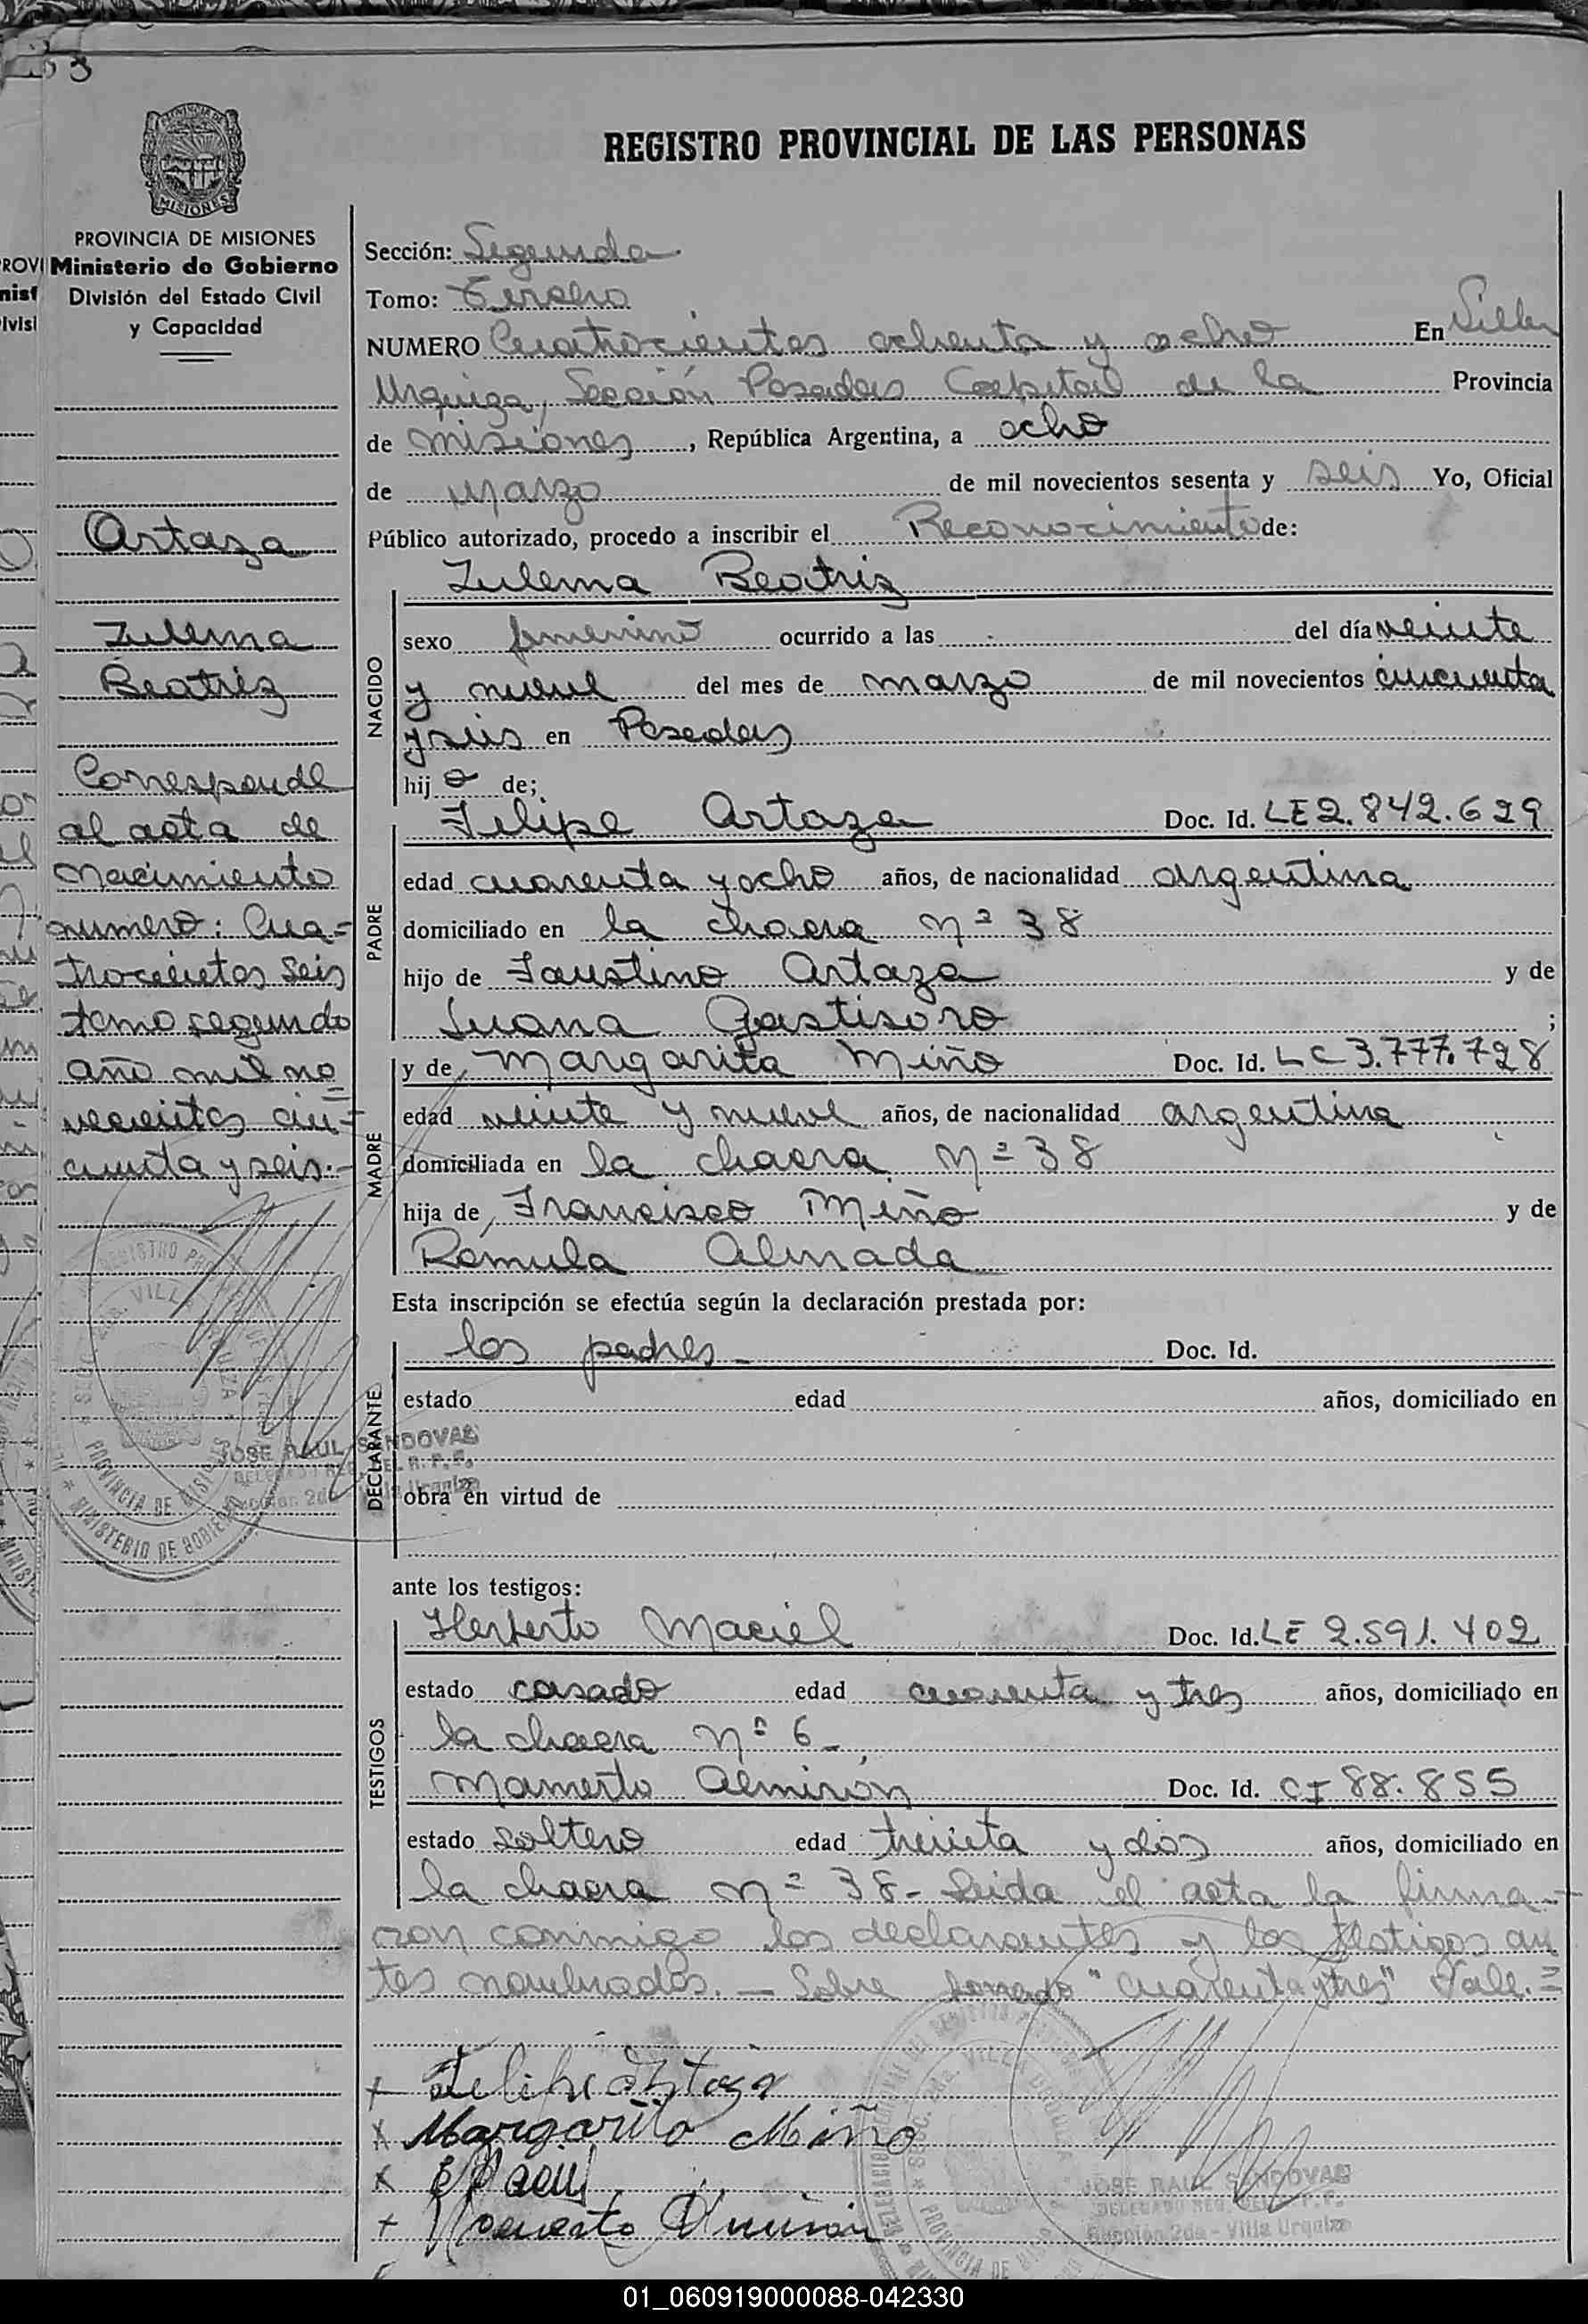 REGISTRO PROVINCIAL DE LAS PERSONAS
MISIONES
PROVINCIA DE MISIONES
Ministerio de Gobierno
División del Estado Civil
y Capacidad
Artaza
Zulema
Beatriz
Corresponde
al acta de
nacimiento
numero: Cua=
trocientos seis
tomo segundo
año mil no=
vecientos cin-
cuenta y seis.-
Sección: Segunda
Tomo: Tercero
NUMERO Cuatrocientos ochenta y ocho En Villa
Urquiza, Sección Posadas Capital de la Provincia
de Misiones, República Argentina, a ocho
de marzo de mil novecientos sesenta y seis Yo, Oficial
Público autorizado, procedo a inscribir el Reconocimiento de:
NACIDO
Zulema Beatriz
sexo femenino ocurrido a las del día veinte
y nueve del mes de marzo de mil novecientos cincuenta
y seis en Posadas
hij a de;
PADRE
Felipe Artaza Doc. Id. LE 2.842.629
edad cuarenta y ocho años, de nacionalidad argentina
domiciliado en la chacra nº 38
hijo de Faustino Artaza y de
Juana Gastisoro ;
MADRE
y de Margarita Miño Doc. Id. LC 3.777.728
edad veinte y nueve años, de nacionalidad argentina
domiciliada en la chacra nº 38
hija de Francisco Miño y de
Rómula Almada
Esta inscripción se efectúa según la declaración prestada por:
DECLARANTE
los padres - Doc. Id.
estado edad años, domiciliado en
obra en virtud de
JOSE RAUL SANDOVAL
ante los testigos:
TESTIGOS
Herberto Maciel Doc. Id. LE 2.591.402
estado casado edad cuarenta y tres años, domiciliado en
la chacra nº 6-
Mamerto Almirón Doc. Id. CI 88.855
estado soltero edad treinta y dos años, domiciliado en
la chacra nº 38- Leida el acta la firma-
ron conmigo los declarantes y los testigos an
tes nombrados. - Sobre borrado "cuarenta y tres" Vale.=
x Felipe Artaza
x Margarita Miño
x
+ Mamerto Almirón
JOSE RAUL SANDOVAL
DELEGADO REG. DEL R.P.P.
Sección 2da - Villa Urquiza
01_060919000088-042330